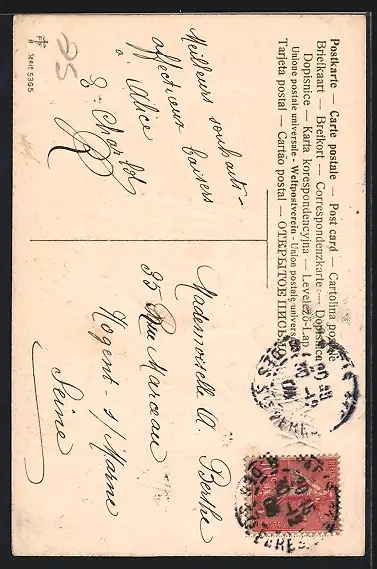 Postkarte — Carte postale — Post card — Cartolina postale
Briefkaart — Brefkort — Correspondenzkarte — Dopisnica
Dopisnice — Karta korespondencyjna — Levelező-Lap
Unione postale universale - Weltpostverein - Union postale universelle
Tarjeta postal — Cartão postal — ОТКРЫТОЕ ПИСЬМО
Meilleurs souhaits -
affectueux baisers
à Alice
SERIE 5305
25
Mademoiselle A Berthe
35 Rue Marceau
Nogent - s/ Marne
Seine